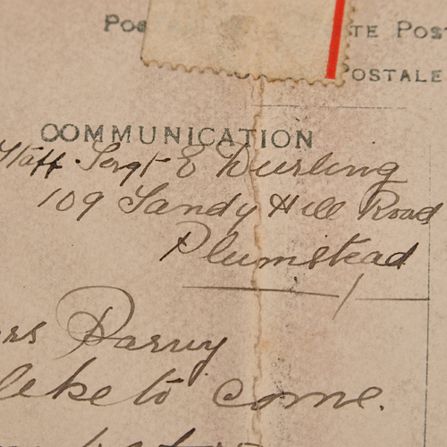 Pos
te Post
Postale
COMMUNICATION
Staff Sergt E Durling
109 Sandy Hill Road
Plumstead
like to come.